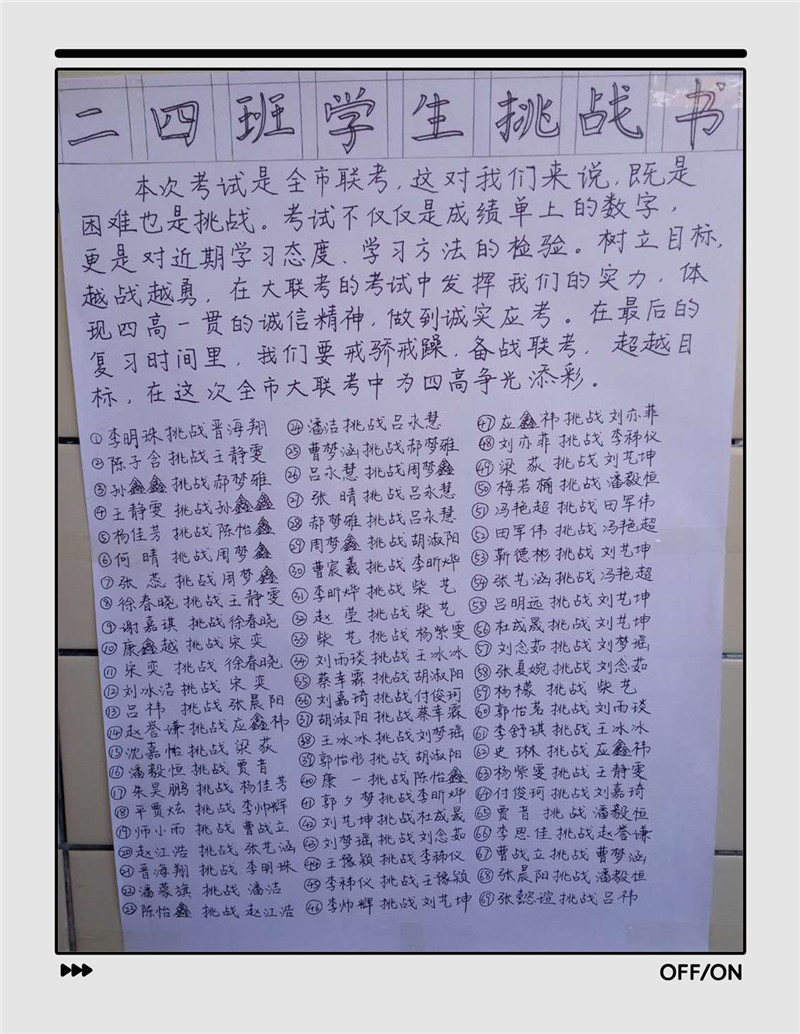 二四班学生挑战书
本次考试是全市联考，这对我们来说，既是
困难也是挑战。考试不仅仅是成绩单上的数字，
更是对近期学习态度、学习方法的检验。树立目标，
越战越勇，在大联考的考试中发挥我们的实力，体
现四高一贯的诚信精神，做到诚实应考。在最后的
复习时间里，我们要戒骄戒躁，备战联考，超越目
标，在这次全市大联考中为四高争光添彩。
①李明珠挑战晋海翔
②陈子含挑战王静雯
③孙鑫鑫挑战郝梦雅
④王静雯挑战孙鑫鑫
⑤杨佳芳挑战陈怡鑫
⑥何晴挑战周梦鑫
⑦张蕊挑战周梦鑫
⑧徐春晓挑战王静雯
⑨谢嘉琪挑战徐春晓
⑩康鑫越挑战宋奕
⑪宋奕挑战徐春晓
⑫刘冰洁挑战宋奕
⑬吕祎挑战张晨阳
⑭赵誉谦挑战应鑫祎
⑮沈嘉怡挑战梁荻
⑯潘毅恒挑战贾音
⑰朱昊鹏挑战杨佳芳
⑱平贾炫挑战李帅辉
⑲师小雨挑战曹战立
⑳赵江浩挑战张艺涵
㉑晋海翔挑战李明珠
㉒潘蒙旗挑战潘洁
㉓陈怡鑫挑战赵江浩
㉔潘洁挑战吕永慧
㉕曹梦涵挑战郝梦雅
㉖吕永慧挑战周梦鑫
㉗张晴挑战吕永慧
㉘郝梦雅挑战吕永慧
㉙周梦鑫挑战胡淑阳
㉚曹宸羲挑战李昕烨
㉛李昕烨挑战柴艺
㉜赵莹挑战柴艺
㉝柴艺挑战杨紫雯
㉞刘雨琰挑战王冰冰
㉟蔡幸霖挑战胡淑阳
㊱刘嘉琦挑战付俊珂
㊲胡淑阳挑战蔡幸霖
㊳王冰冰挑战刘梦瑶
㊴郭怡彤挑战胡淑阳
㊵康一挑战陈怡鑫
㊶郭夕梦挑战李昕烨
㊷刘艺坤挑战杜成晟
㊸刘梦瑶挑战刘念茹
㊹王豫颖挑战李祎仪
㊺李祎仪挑战王豫颖
㊻李帅辉挑战刘艺坤
㊼应鑫祎挑战刘亦菲
㊽刘亦菲挑战李祎仪
㊾梁荻挑战刘艺坤
㊿梅若楠挑战潘毅恒
51冯艳超挑战田军伟
52田军伟挑战冯艳超
53靳德彬挑战刘艺坤
54张艺涵挑战冯艳超
55吕明远挑战刘艺坤
56杜成晟挑战刘艺坤
57刘念茹挑战刘梦瑶
58张夏婉挑战刘念茹
59杨檬挑战柴艺
60郭怡茗挑战刘雨琰
61李舒琪挑战王冰冰
62史琳挑战应鑫祎
63杨紫雯挑战王静雯
64付俊珂挑战刘嘉琦
65贾音挑战潘毅恒
66李思佳挑战赵誉谦
67曹战立挑战曹梦涵
68张晨阳挑战潘毅恒
69张懿谊挑战吕祎
OFF/ON